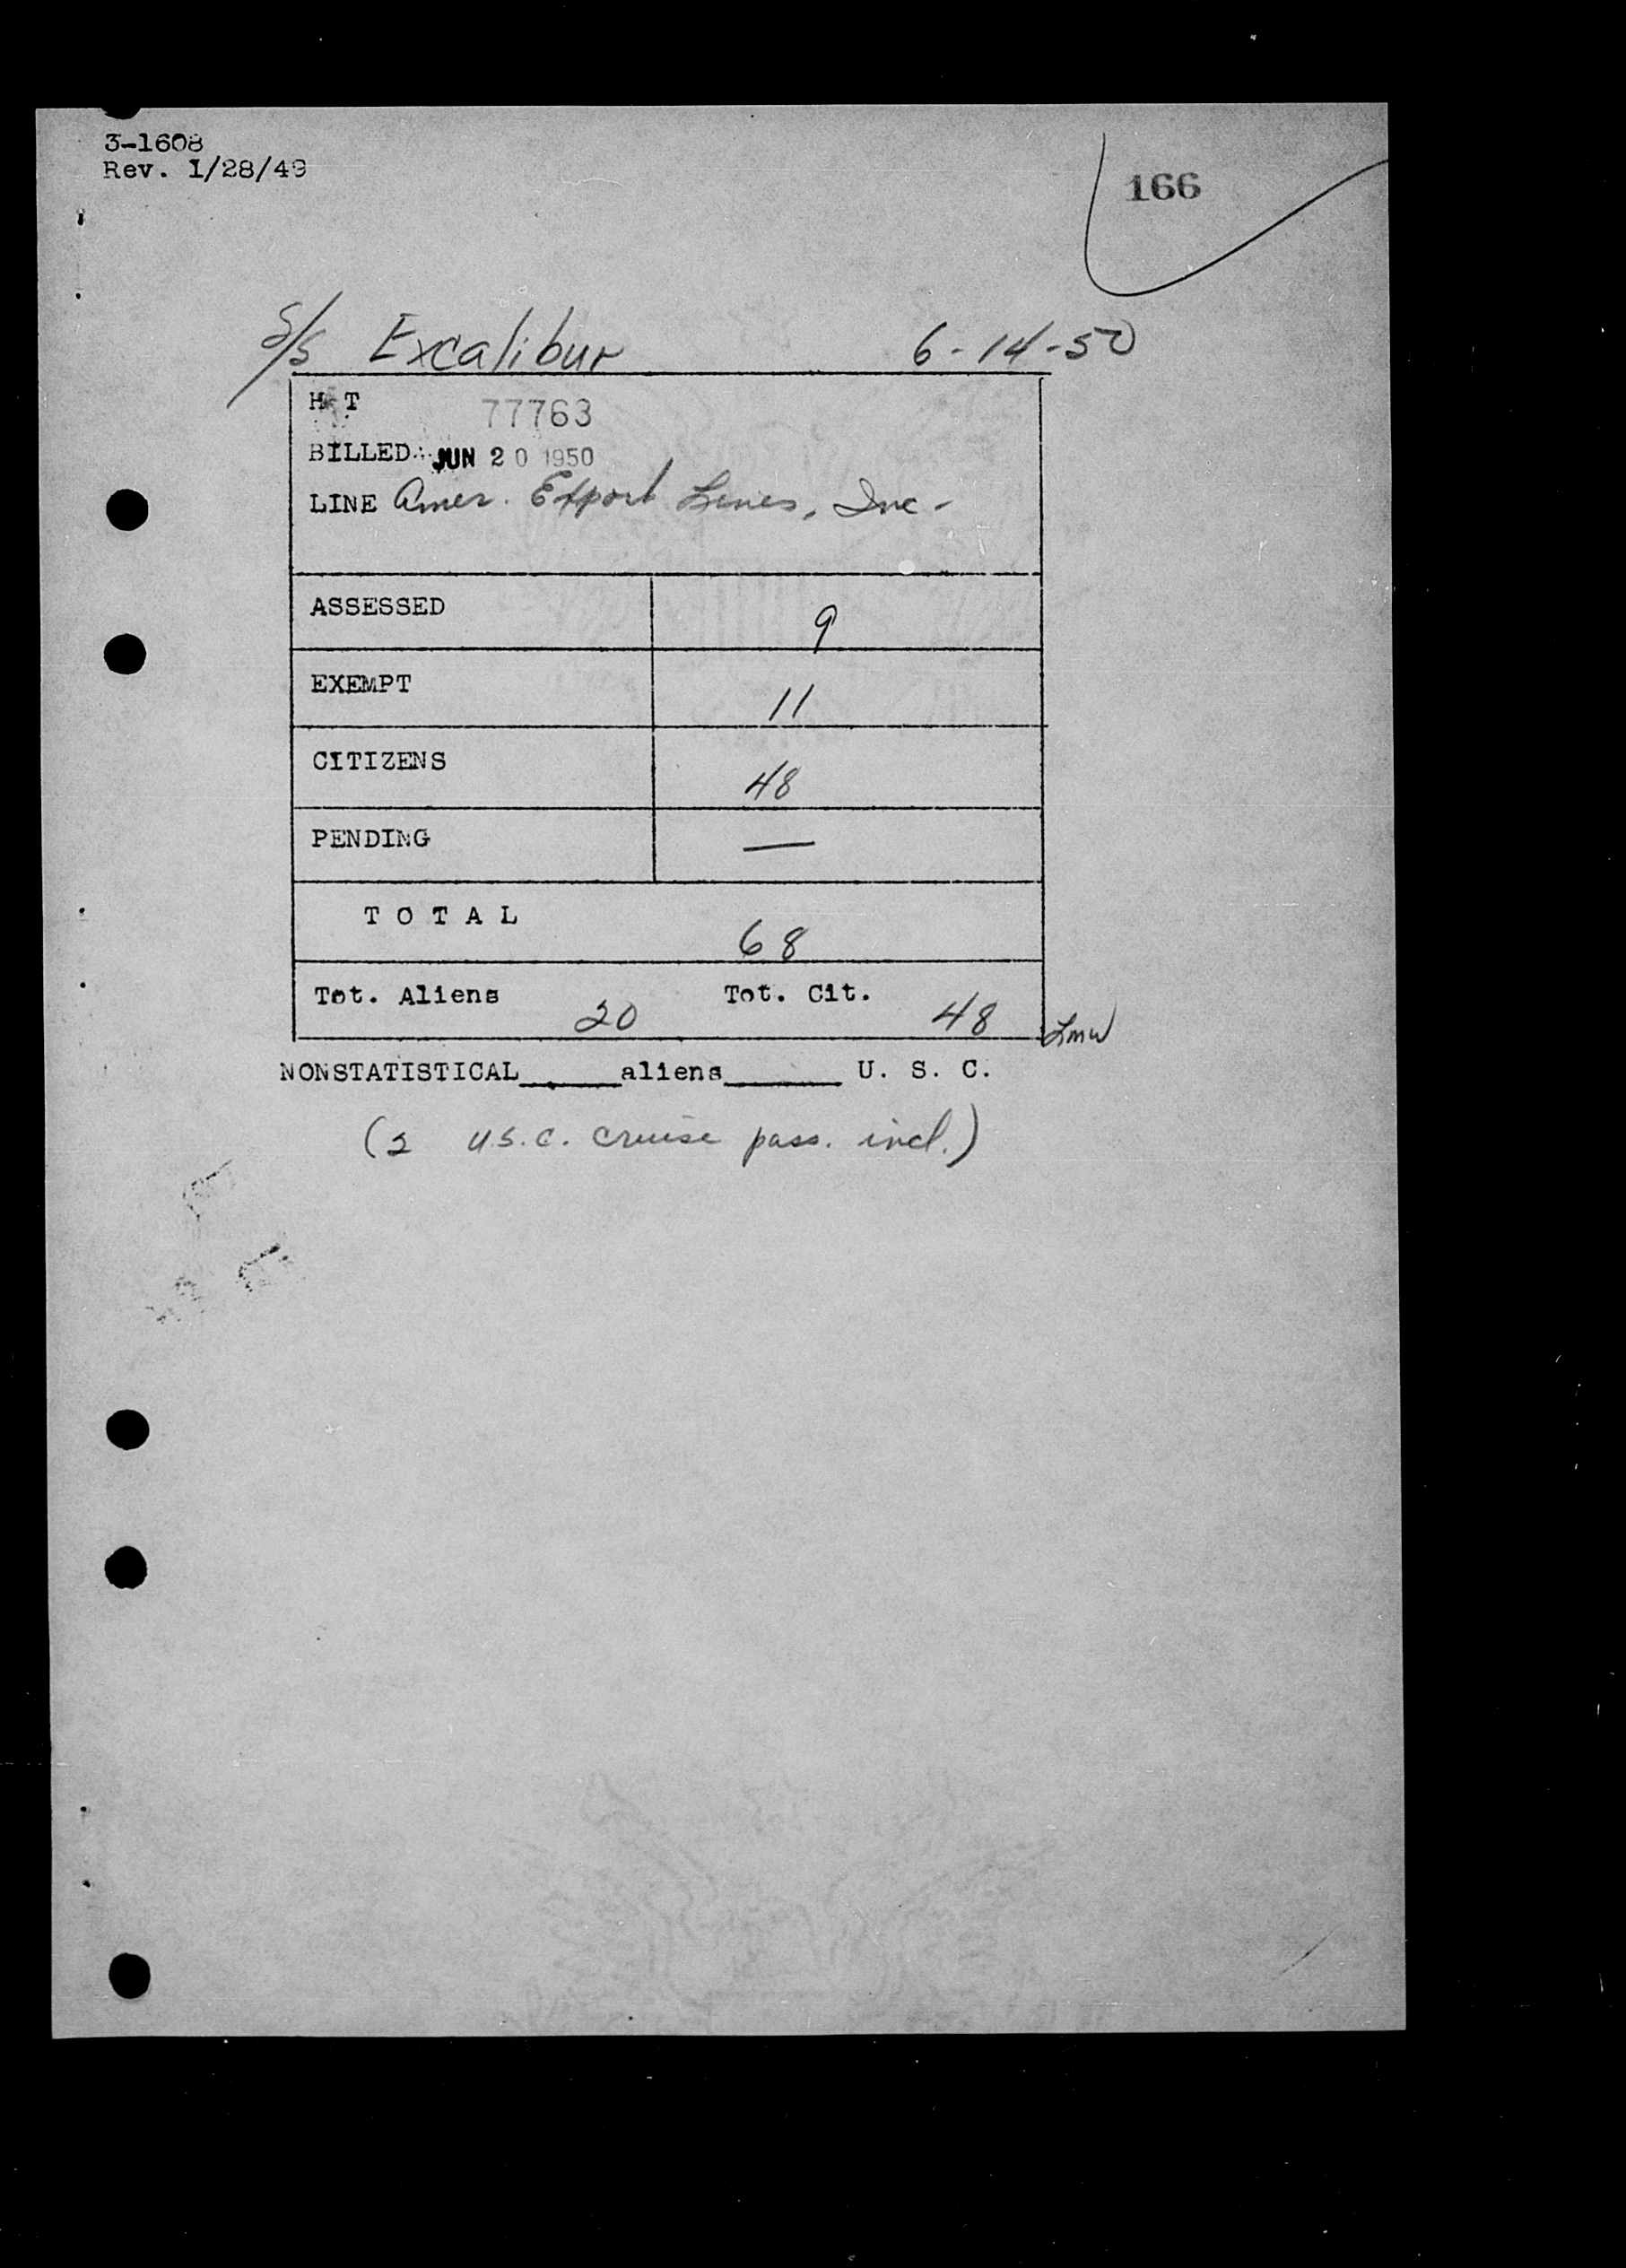 3-1608
Rev. 1/28/49
166
S/S Excalibur 6-14-50
H T 77763
BILLED JUN 20 1950
LINE Amer. Export Lines, Inc.
ASSESSED 9
EXEMPT 11
CITIZENS 48
PENDING —
TOTAL 68
Tot. Aliens 20 Tot. Cit. 48 Lmw
NONSTATISTICAL______aliens_______ U. S. C.
(2 U.S.C. cruise pass. incl.)